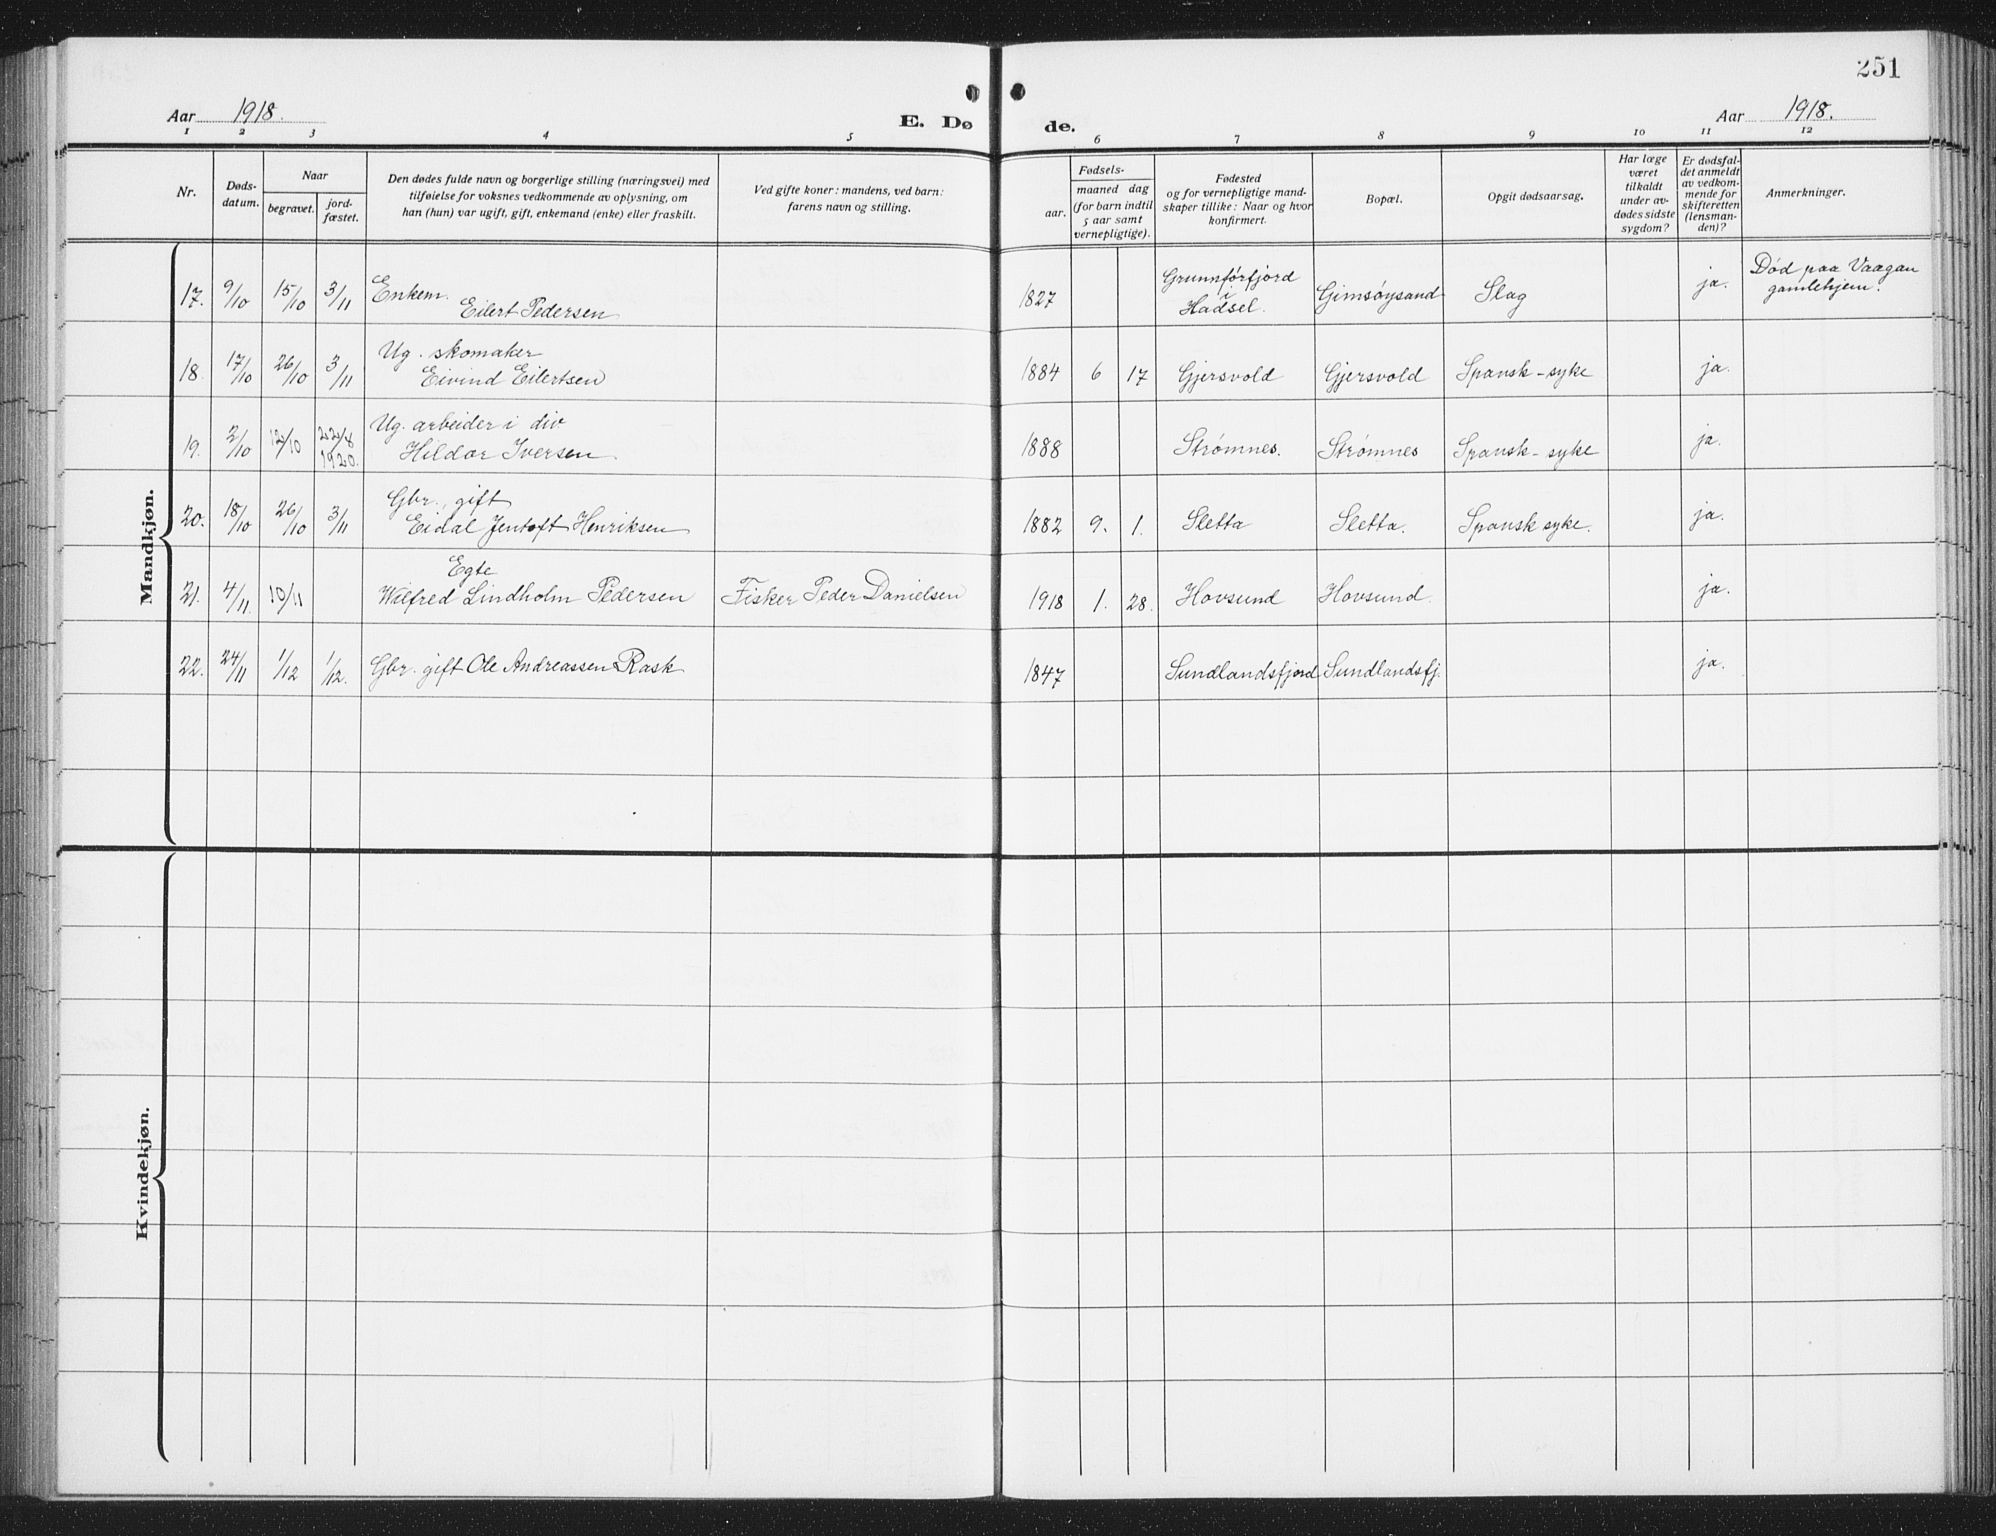 251
Aar 1918. E. Dø de. Aar 1918.
1 2 3 4 5 6 7 8 9 10 11 12
Nr.
Døds-
datum.
Naar
begravet.
jord-
fæstet.
Den dødes fulde navn og borgerlige stilling (næringsvei) med
tilføielse for voksnes vedkommende av oplysning, om
han (hun) var ugift, gift, enkemand (enke) eller fraskilt.
Ved gifte koner: mandens, ved barn:
farens navn og stilling.
Fødsels-
aar.
maaned dag
(for barn indtil
5 aar samt
vernepligtige).
Fødested
og for vernepligtige mand-
skaper tillike: Naar og hvor
konfirmert.
Bopæl.
Opgit dødsaarsag.
Har læge
været
tilkaldt
under av-
dødes sidste
sygdom?
Er dødsfal-
det anmeldt
av vedkom-
mende for
skifteretten
(lensman-
den)?
Anmerkninger.
Mandkjøn.
17. 9/10 15/10 3/11 Enkem.
Eilert Pedersen
1827 Grunnførfjord
Hadsel. Gimsøysand Slag ja. Død paa Vaagan
gamlehjem.
18. 17/10 26/10 3/11 Ug. skomaker
Eivind Eilertsen
1884 6 17 Gjersvold Gjersvold Spansk-syke ja.
19. 2/10 12/10 22/8
1920. Ug. arbeider i div
Hildor Iversen.
1888 Strømnes. Strømnes Spansk-syke ja.
20. 18/10 26/10 3/11 Gbr., gift
Eidal Jentoft Henriksen
1882 9. 1. Sletta Sletta. Spansk syke. ja.
21. 4/11. 10/11 Egte
Wilfred Lindholm Pedersen Fisker Peder Danielsen
1918 1. 28. Hovsund Hovsund. ja.
22. 24/11 1/12 1/12. Gbr. gift Ole Andreassen Rask
1847 Sundlandsfjord Sundlandsfj. ja.
Kvindekjøn.